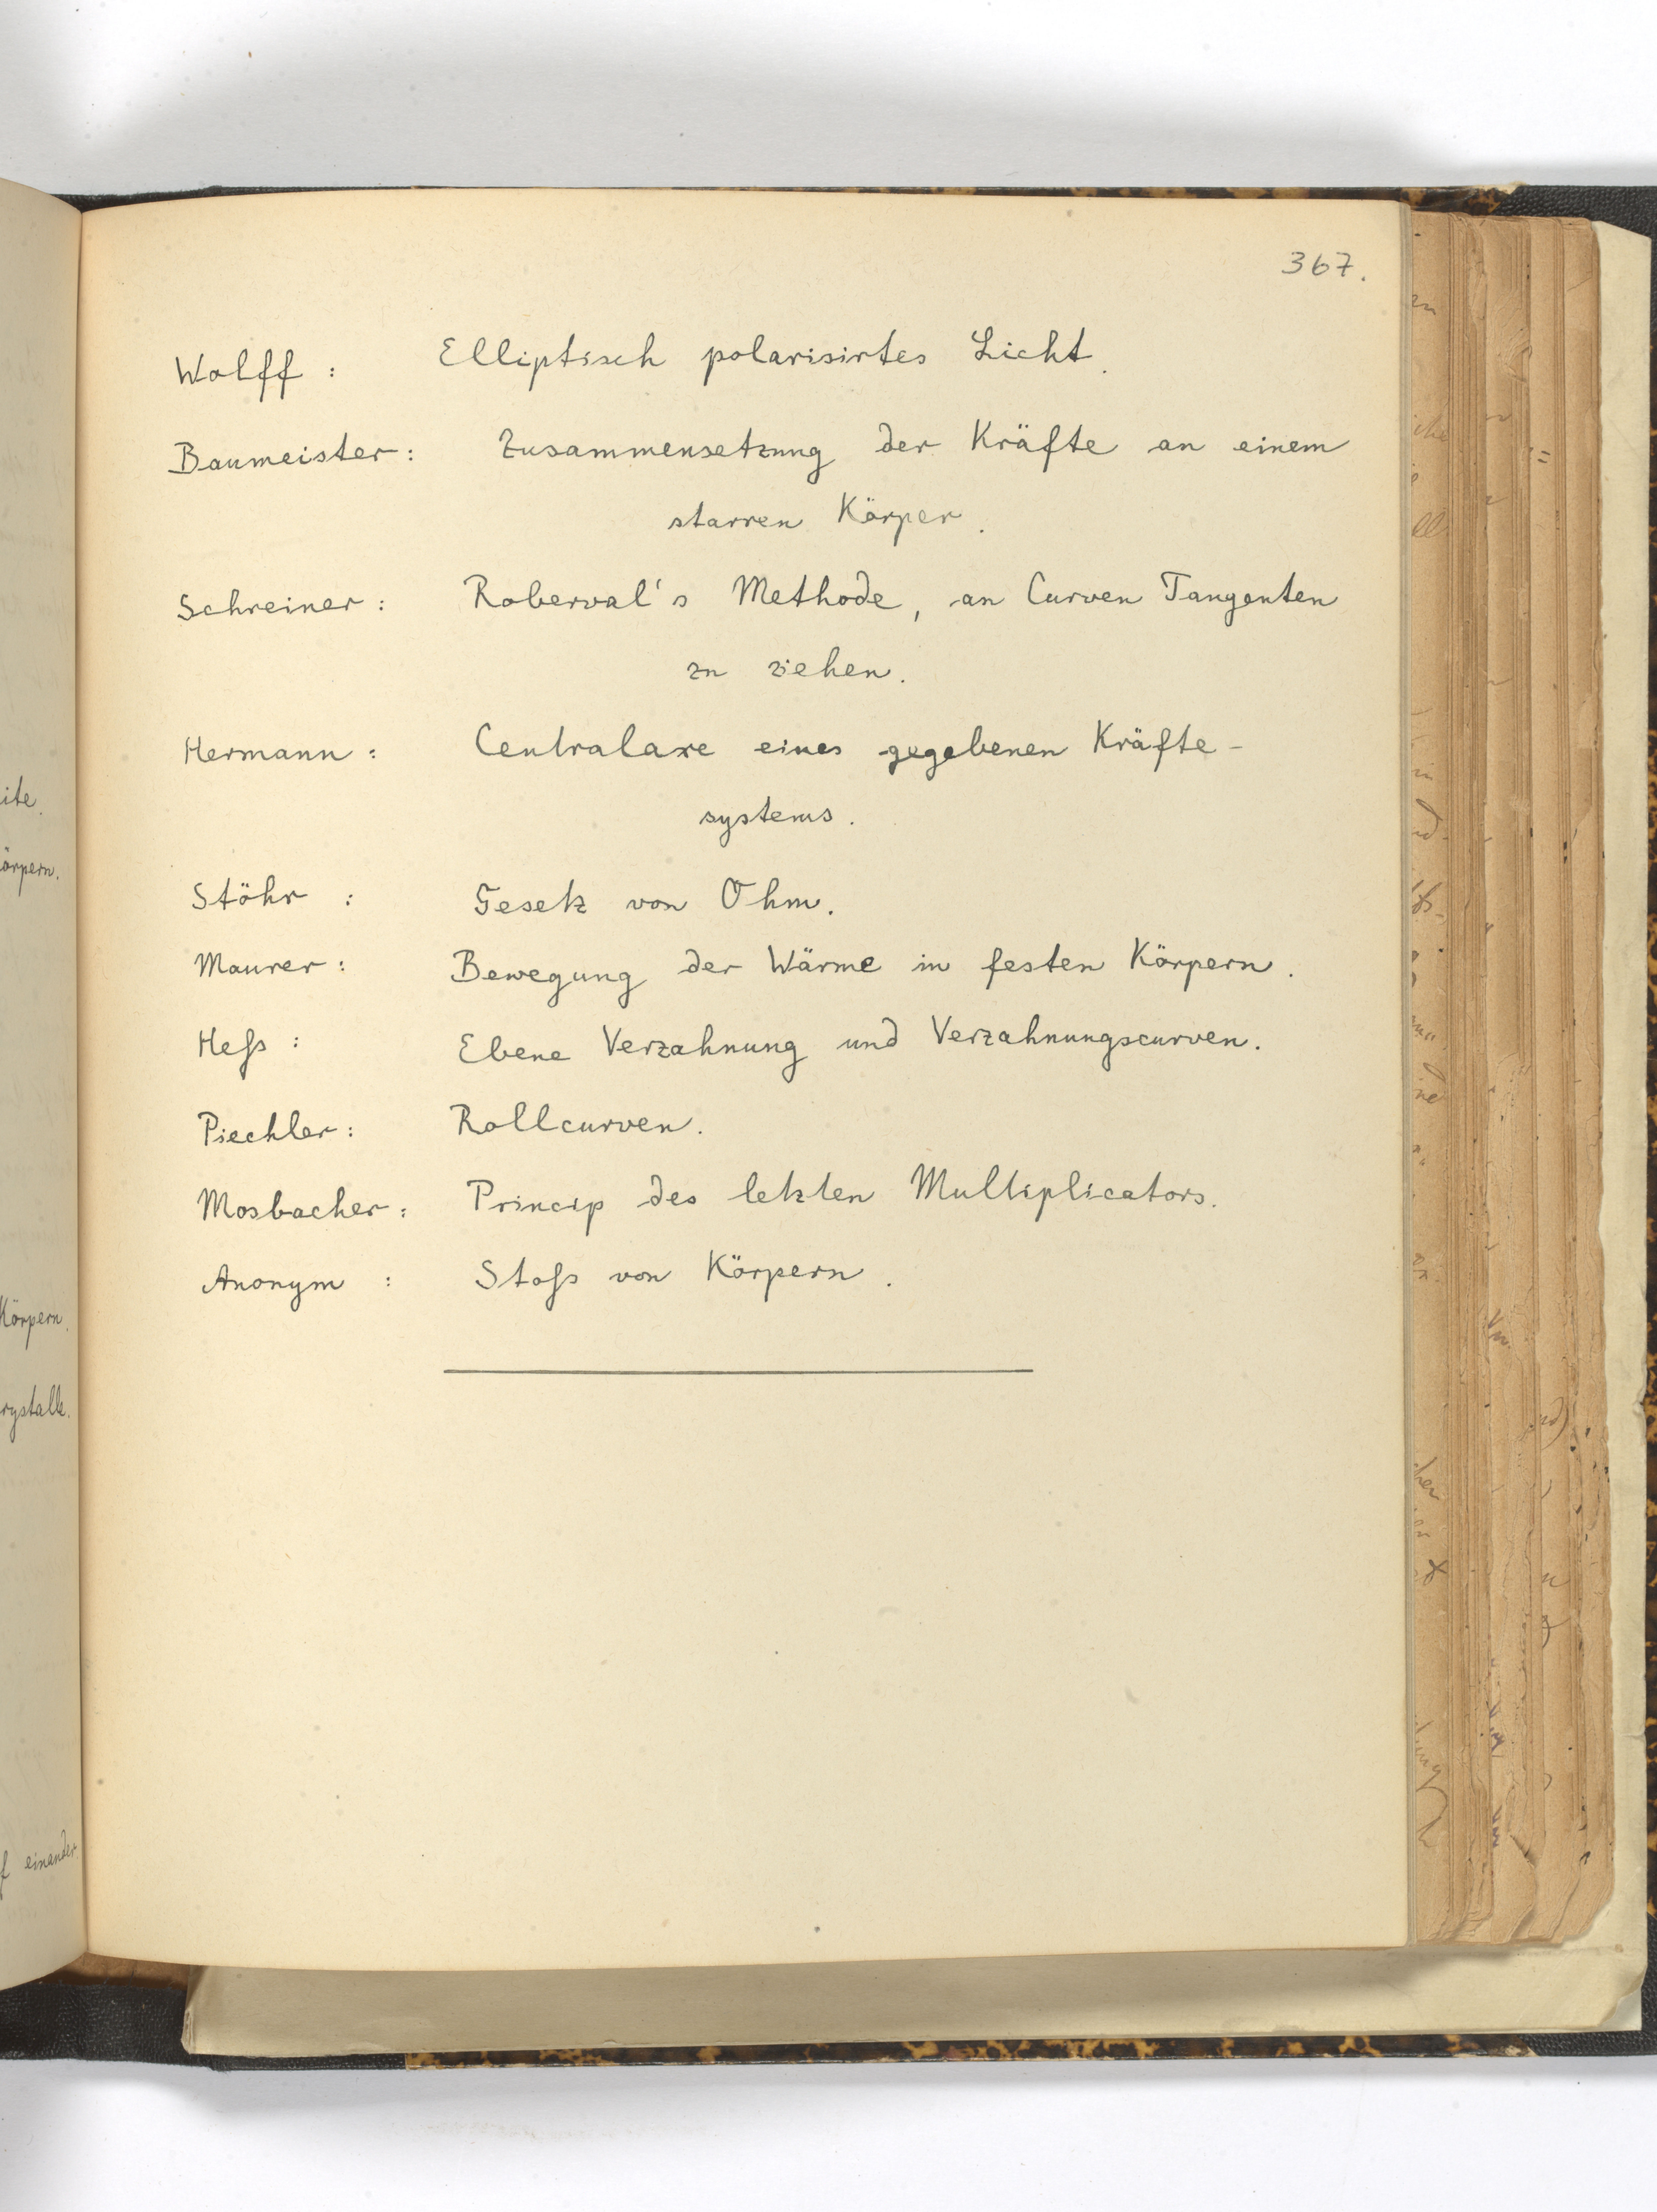 367.
Wolff : Elliptisch polarisirtes Licht.
Baumeister : Zusammensetzung der Kräfte an einem
starren Körper.
Schreiner : Roberval's Methode, an Curven Tangenten
zu ziehen.
Hermann : Centralaxe eines gegebenen Kräfte-
systems.
Stöhr : Gesetz von Ohm.
Maurer : Bewegung der Wärme in festen Körpern.
Heß : Ebene Verzahnung und Verzahnungscurven.
Piechler : Rollcurven.
Mosbacher : Princip des letzten Multiplicators.
Anonym : Stoß von Körpern.
ite.
örpern.
Körpern.
rystalle.
f einander.